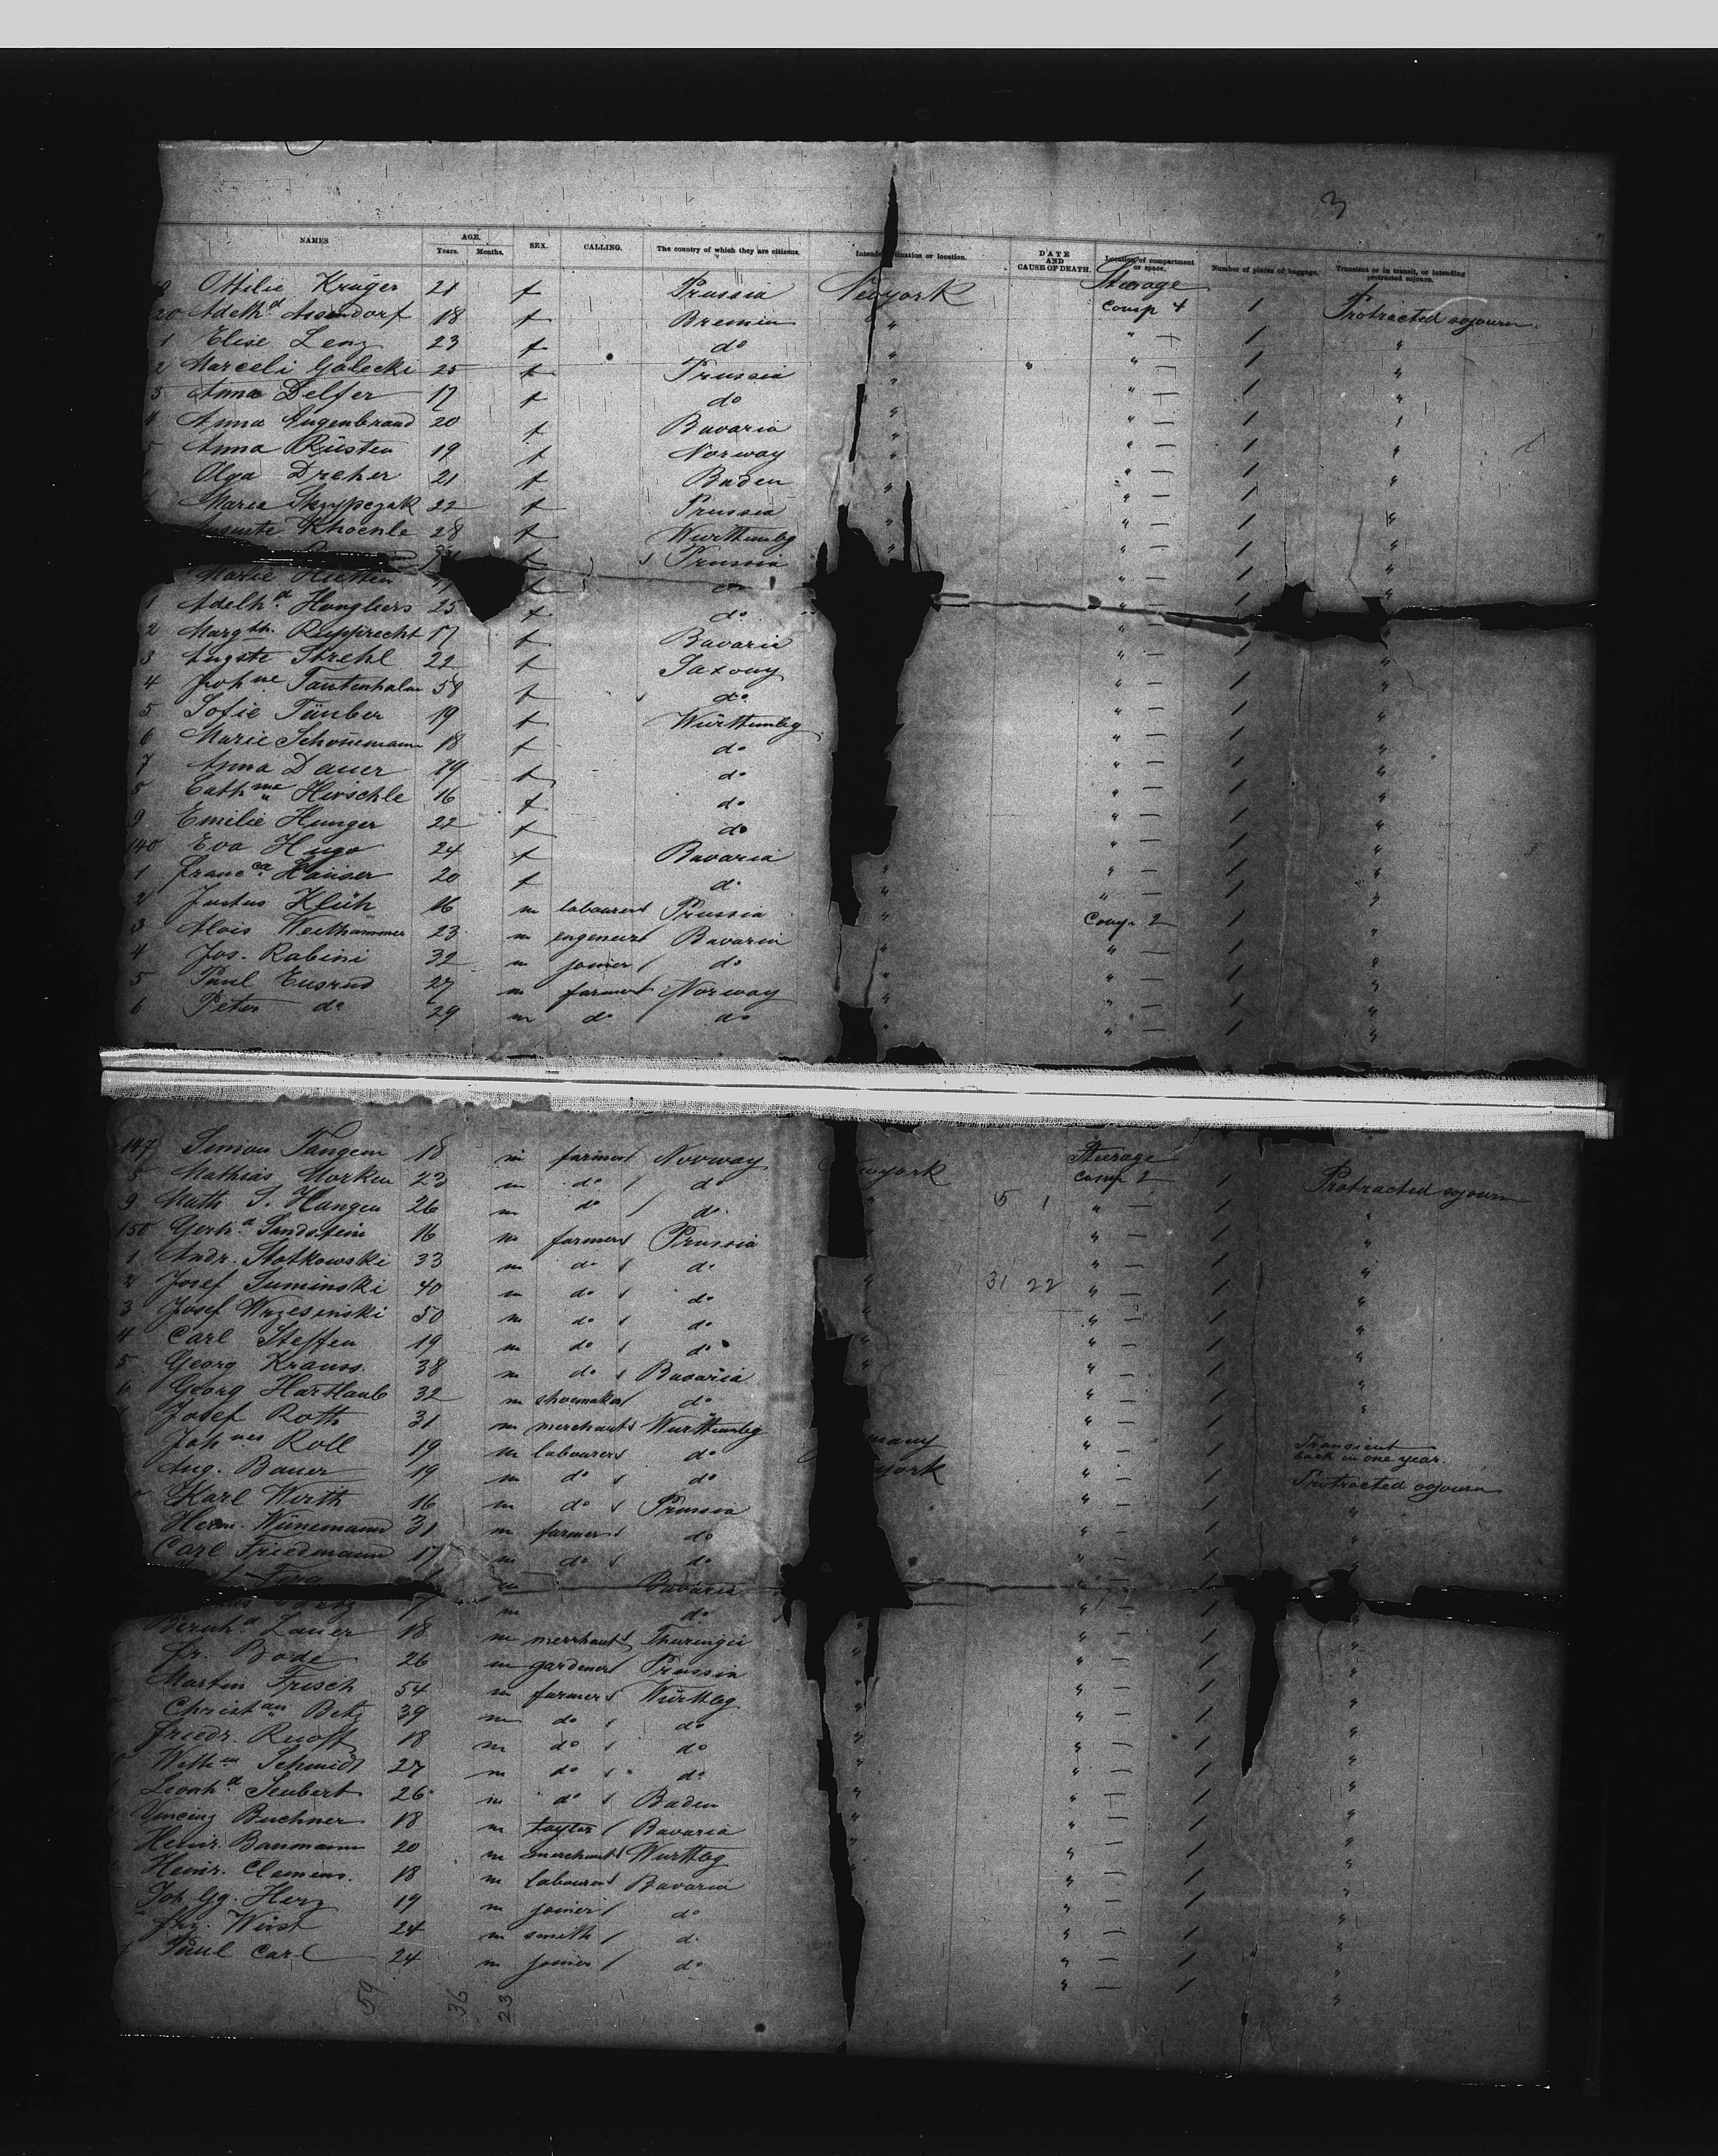 3
NAMES AGE. Years. Months. SEX. CALLING. The country of which they are citizens. Intended destination or location. DATE AND CAUSE OF DEATH. Location of compartment or space. Number of pieces of baggage. Transient or in transit, or intending protracted sojourn.
Ottilie Krüger 21 f Prussia Newyork Steerage
20 Adethd Assendorf 18 f Bremen " Comp 4 1 Protracted sojourn
1 Elise Lenz 23 f do " " — 1 "
2 Marceli Golecki 25 f Prussia " " — 1 "
3 Anna Delfer 17 f do " " — 1 "
4 Anna Jugenbrand 20 f Bavaria " " — 1 "
5 Anna Rüsten 19 f Norway " " — 1 "
Olga Dreher 21 f Baden " " — 1 "
Maria Skrzypczak 22 f Prussia " " — 1 "
Khoenle 28 f Württembg " — 1 "
f Prussia " — 1 "
Marie f do " — 1 "
1 Adelhd. Hangliers 25 f do " — 1 "
2 Margth. Rupprecht 17 f Bavaria " — 1 "
3 Augste Strehl 22 f Saxony " — 1 "
4 Johne Tautenhahn 58 f do " — 1 "
5 Sofie Täuber 19 f Württembg " — 1 "
6 Marie Schönemann 18 f do " — 1 "
7 Anna Dauer 19 f do " — 1 "
8 Cathne Hirschle 16 f do " — 1 "
9 Emilie Hunger 22 f do " — 1 "
140 Eva Hugo 24 f Bavaria " — 1 "
1 Franca Häuser 20 f do " " — 1 "
2 Justus Klüh 16 m labourer Prussia " Comp 2 1 "
3 Alois Weithammer 23 m engeneer Bavaria " " — 1 "
4 Jos. Rabini 32 m joiner do " " — 1 "
5 Paul Eusrud 27 m farmer Norway " " — 1 "
6 Peter do 29 m do do " " — 1 "
147 Simon Tangen 18 m farmer Norway Steerage
8 Mathias Morken 23 m do do york Comp 2 1 Protracted sojourn
9 Math S. Haugen 26 m do do " 5 1 " — 1 "
150 Gerhd. Sandstein 16 m farmer Prussia " " — 1 "
1 Andr. Slotkowski 33 m do do " — 1 "
2 Josef Suminski 40 m do do " 31 22 " — 1 "
3 Josef Wrzesinski 50 m do do " " — 1 "
4 Carl Steffen 19 m do do " " — 1 "
5 Georg Krauss 38 m do Bavaria " " — 1 "
6 Georg Hartlaub 32 m shoemaker do " — 1 "
Josef Roth 31 m merchant Württembg " — 1
Johnes Roll 19 m labourer do many " — 1 Transient back in one year.
Aug. Bauer 19 m do do york " — 1 Protracted sojourn
Karl Wirth 16 m do Prussia " — 1 "
Herm. Wünemann 31 m farmer do " — 1 "
Carl Friedmann 17 m do do " — 1 "
m Bavaria " — 1
m do " — 1 "
Bernhd Lauer 18 m merchant Thuringia " " — 1 "
Fr. Bode 26 m gardener Prussia " " — 1 "
Martin Frisch 54 m farmer Württbg " " — 1 "
Christan Betz 39 m do do " " — 1 "
Friedr. Ruoff 18 m do do " " — 1 "
Willm Schmidt 27 m do do " " — 1 "
Leonhd Seubert 26 m do Baden " " — 1 "
Vincenz Buchner 18 m taylor Bavaria " " — 1 "
Heinr. Baumann 20 m merchant Württbg " " — 1 "
Heinr. Clemens. 18 m labourer Bavaria " — 1 "
Joh Gg. Herz 19 m joiner do " — 1 "
Wirst 24 m smith do " — 1 "
Paul Carl 24 m joiner do " — 1 "
59 36 23